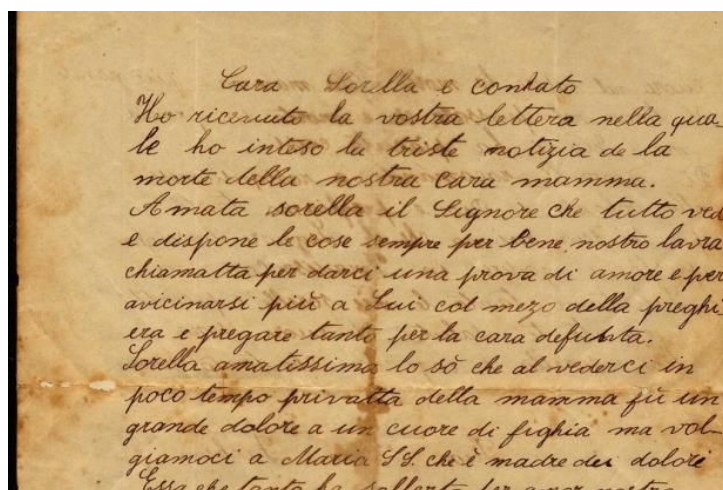 Cara Sorella e contato
Ho ricevuto la vostra lettera nella qua-
le ho inteso la triste notizia de la
morte della nostra cara mamma.
Amata sorella il Signore che tutto ved
e dispone le cose sempre per bene nostro lavra
chiamatta per darci una prova di amore e per
avicinarsi più a Lui col mezo della preghi-
era e pregare tanto per la cara defunta.
Sorella amatissima lo sò che al vederci in
poco tempo privatta della mamma fù un
grande dolore a un cuore di fighia ma vol-
giamoci a Maria SS. che è madre dei dolori
Essa che tanto ha sofferto per amor nostro